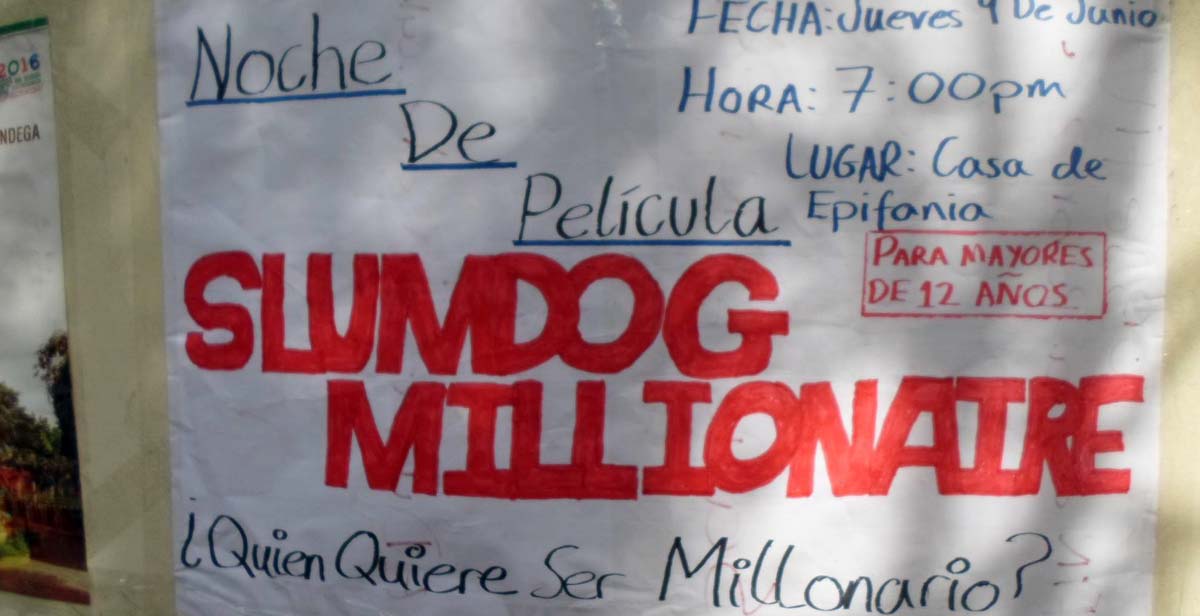 2016
NDEGA
Noche
De
Película
FECHA: Jueves 9 De Junio
HORA: 7:00pm
LUGAR: Casa de
Epifania
PARA MAYORES
DE 12 AÑOS
SLUMDOG
MILLIONAIRE
¿Quien Quiere Ser Millonario?